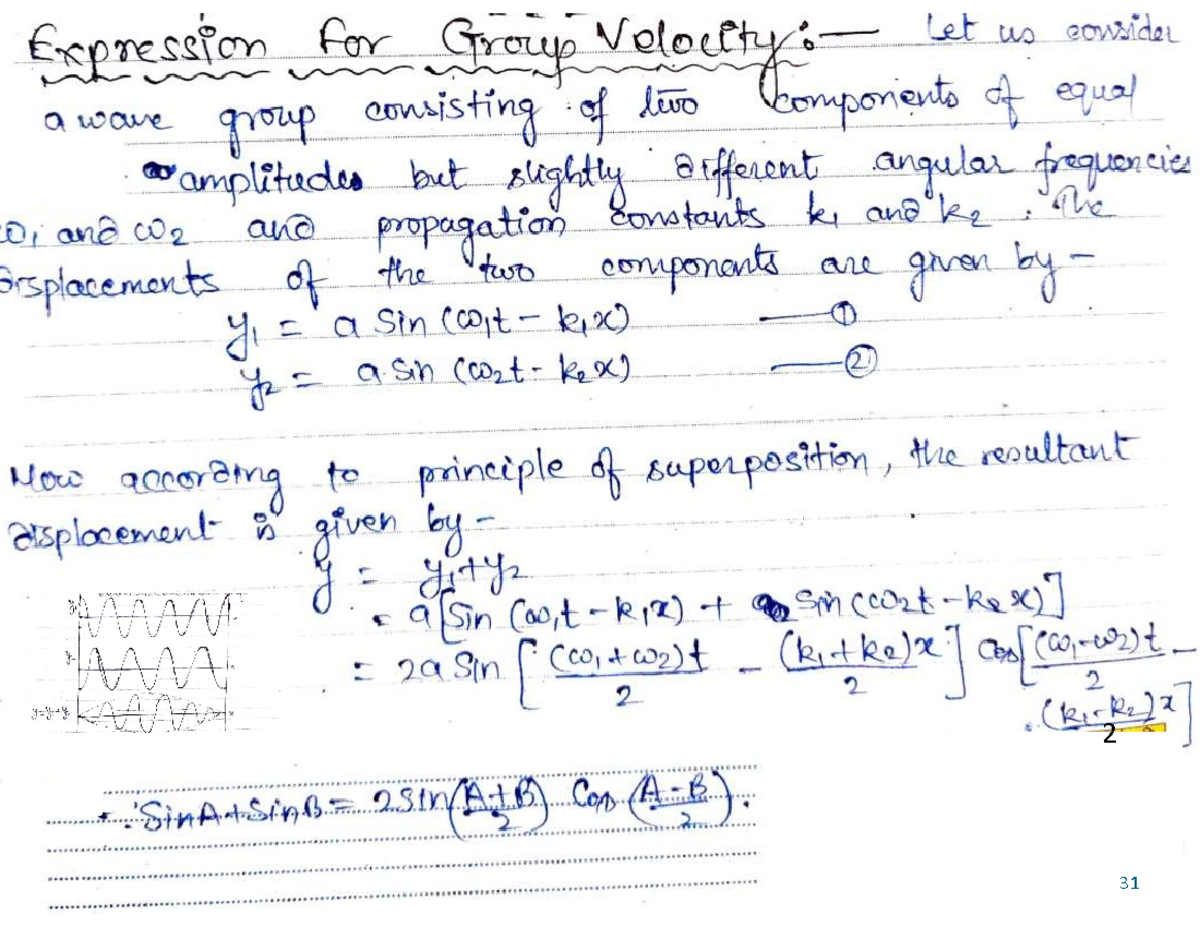 Expression for Group Velocity :— Let us consider
a wave group consisting of two components of equal
amplitudes but slightly different angular frequencies
ω₁ and ω₂ and propagation constants k₁ and k₂. The
displacements of the two components are given by –
y₁ = a sin (ω₁t – k₁x) —①
y₂ = a sin (ω₂t – k₂x) —②
Now according to principle of superposition, the resultant
displacement is given by –
y = y₁+y₂
= a[Sin (ω₁t – k₁x) + Sin (ω₂t – k₂x)]
= 2a Sin [(ω₁+ω₂)t/2 – (k₁+k₂)x/2] Cos[(ω₁-ω₂)t/2 –
(k₁-k₂)x/2]
∵ SinA+SinB = 2Sin(A+B/2) Cos (A-B/2).
31